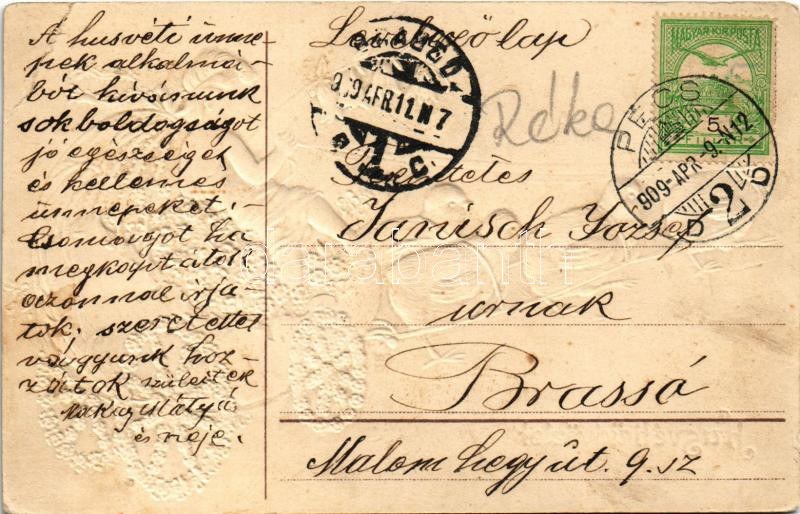 A husvéti ünne-
pek alkalmá-
ból kívánunk
sok boldogságot
jó egészséget
és kellemes
ünnepeket.
Csomagot ha
megkaptátok
azonnal irja-
tok. szeretettel
vagyunk hoz-
zátok szüleitek
Mátyás
és neje.
Levelezőlap
Réka
MAGYAR KIR. POSTA
5
PÉCS
909-APR-9-N12
2
D
909 APR 11 N 7
Tekintetes
Janisch József
urnak
Brassó
Malom hegy út. 9. sz